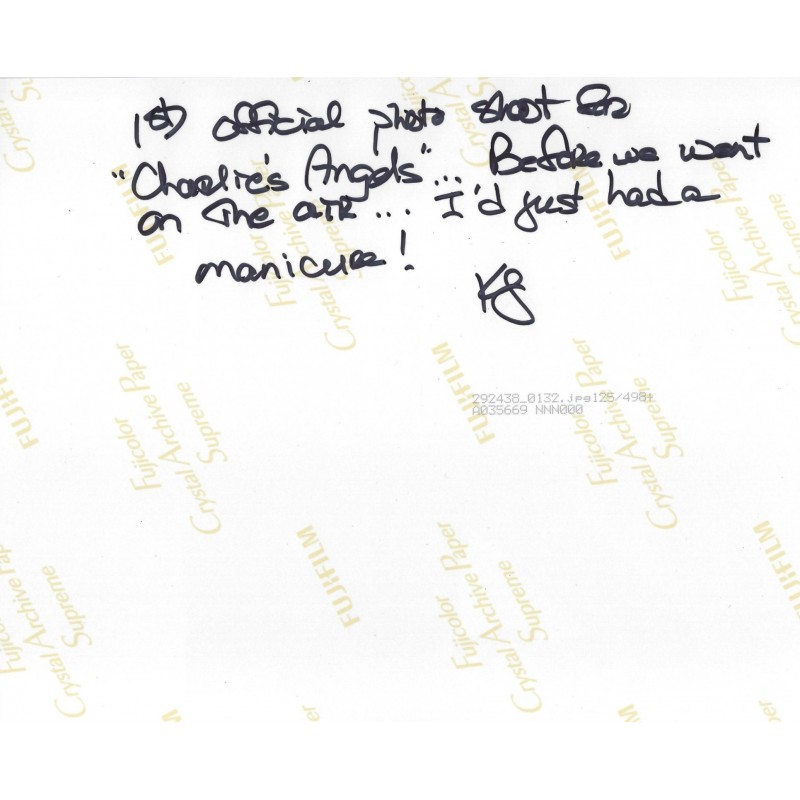 1st official photo shoot for
"Charlie's Angels"... Before we went
on the air... I'd just had a
manicure!
KJ
292438_0132.jpg125/498t
A035669 NNN000
Crystal Archive
FUJIFILM
Fujicolor
Crystal Archive Paper
Supreme
FUJIFILM
Fujicolor
Crystal Archive Paper
FUJIFILM
Fujicolor
Crystal Archive Paper
Supreme
FUJIFILM
Fujicolor
Crystal Archive Paper
Supreme
Fujicolor
Crystal Archive Paper
Supreme
FUJIFILM
Fujicolor
Crystal Archive Paper
Supreme
FUJIFILM